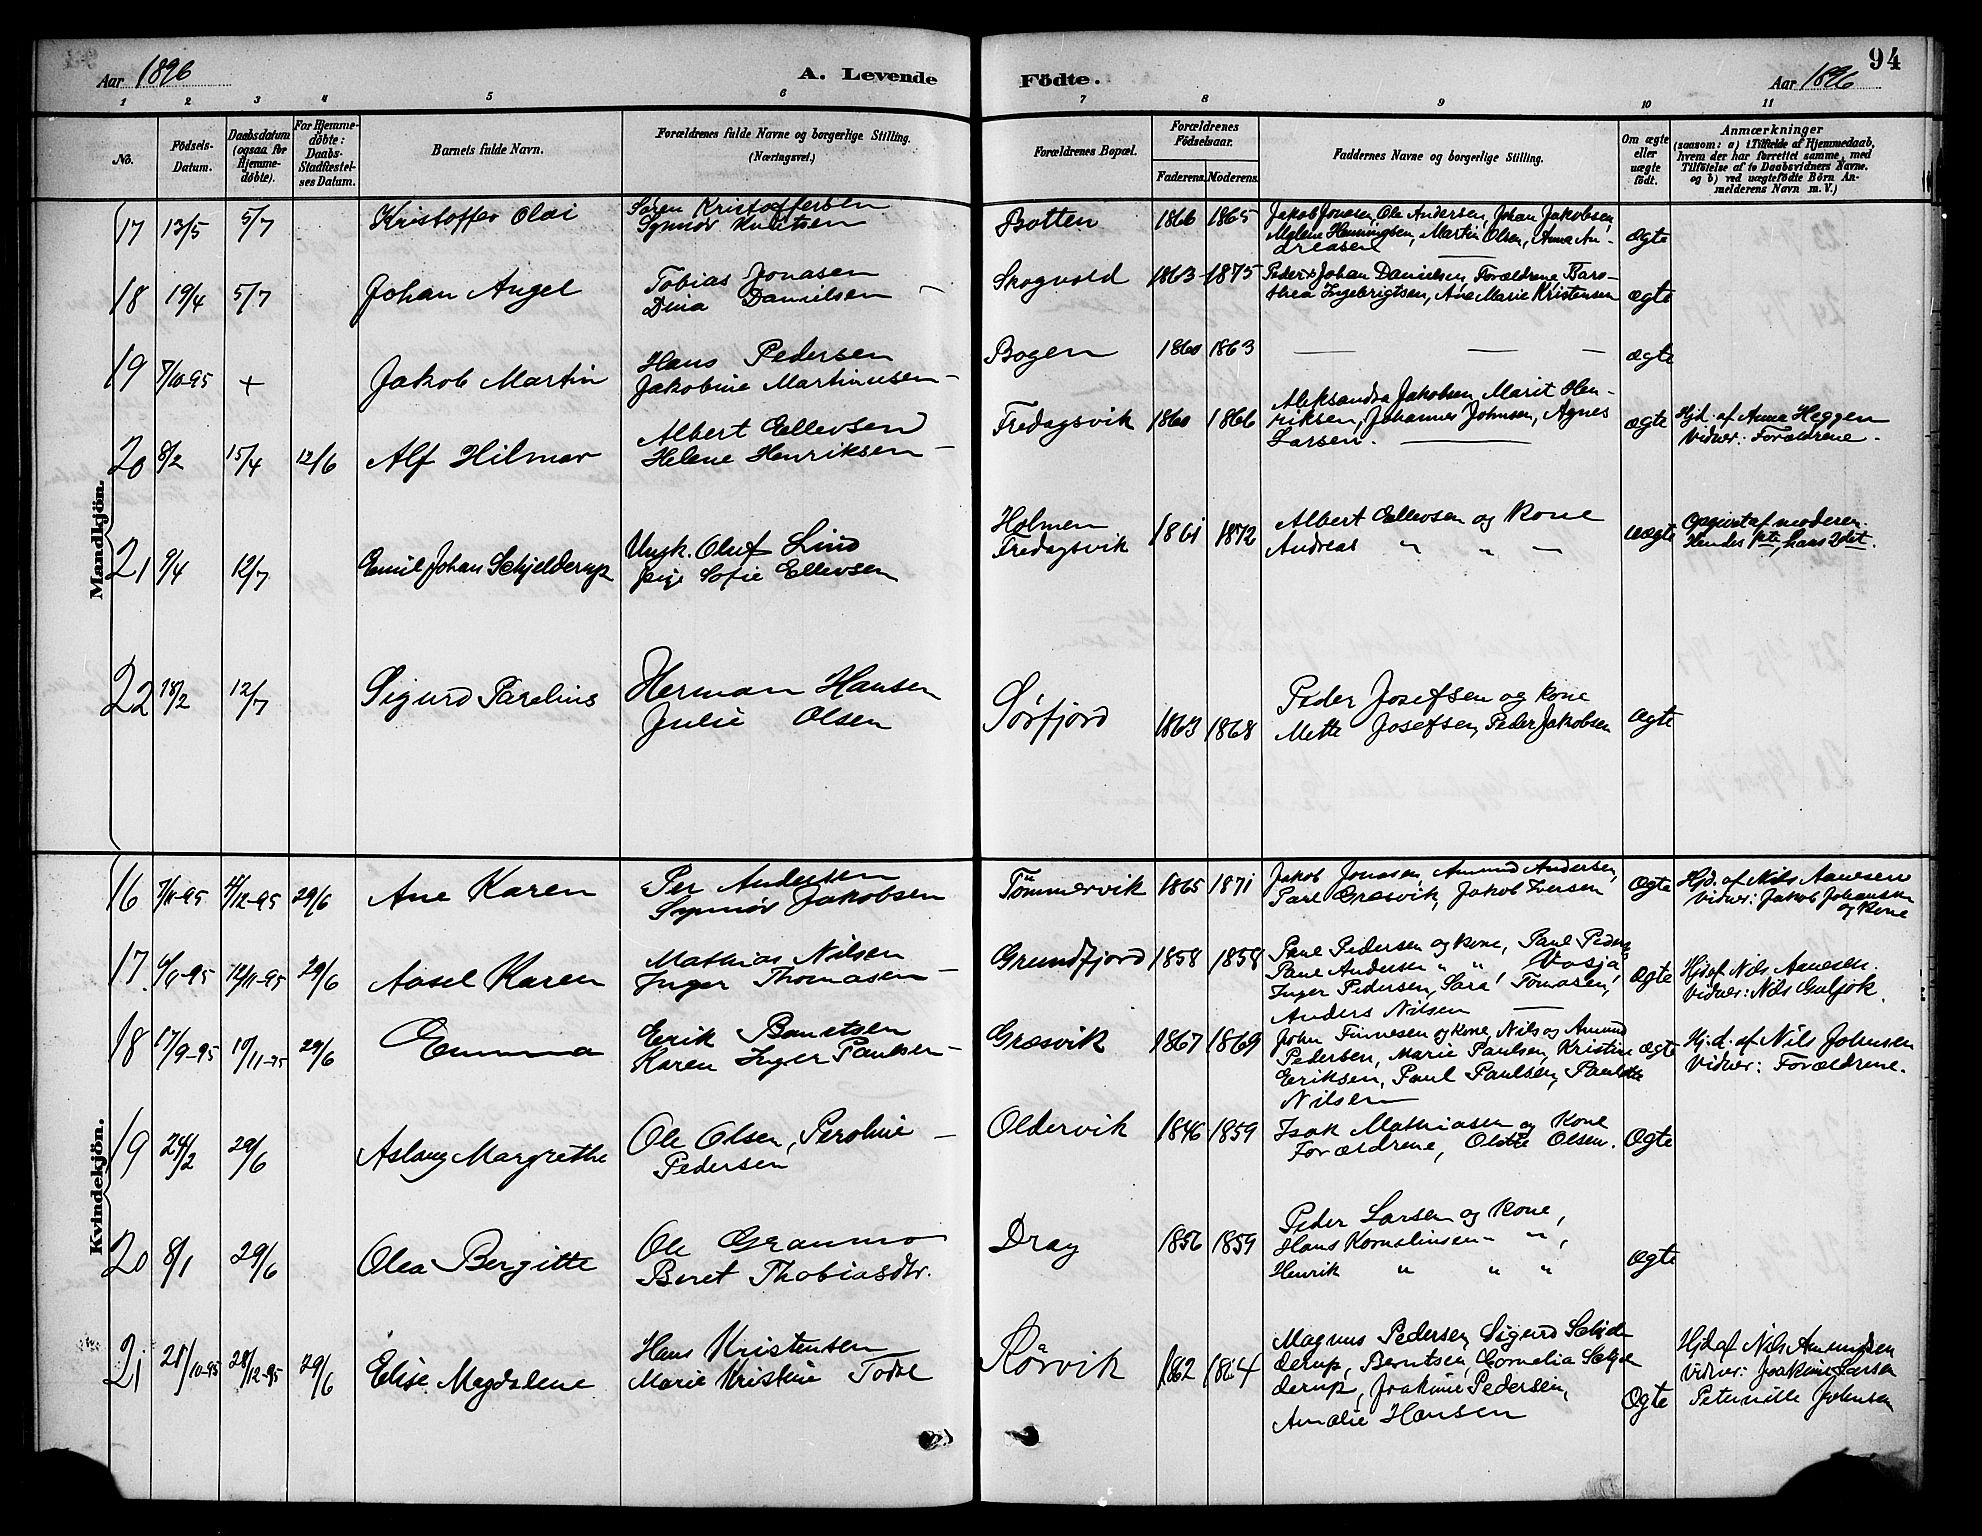 Aar 1896
A. Levende
Födte.
Aar 1896
94
1 2 3 4 5 6 7 8 9 10 11
No.
Födsels-
Datum.
Daabsdatum
(ogsaa for
Hjemme-
döbte).
For Hjemme-
döbte:
Daabs-
Stadfæstel-
ses Datum.
Barnets fulde Navn.
Forældrenes fulde Navne og borgerlige Stilling.
(Næringsvei.)
Forældrenes Bopæl.
Forældrenes
Födselsaar.
Faderens. Moderens.
Faddernes Navne og borgerlige Stilling.
Om ægte
eller
uægte
födt.
Anmærkninger
(saasom: a) i Tilfælde af Hjemmedaab,
hvem der har forrettet samme, med
Tilföielse af to Daabsvidners Navne.
og b) ved uægtefödte Börn An-
melderens Navn m. V.)
Mandkjön.
17 13/5 5/7 Kristoffer Olai
Sören Kristoffersen
Synnöv Knutsen
Botten 1866 1865
Jakob Jonasen, Ole Andersen, Johan Jakobsen,
Malene Henningsen, Martin Olsen, Anna An-
dreasen
ægte
18 19/4 5/7 Johan Angel
Tobias Jonasen
Dina Danielsen
Skogvold 1863 1875
Peder & Johan Danielsen, Forældrene Baro-
thea Ingebrigtsen, Ane Marie Kristensen
ægte
19 7/10-95 + Jakob Martin
Hans Pedersen
Jakobine Martinusen
Bogen 1860 1863
— — —
ægte
20 8/2 15/4 12/6 Alf Hilmar
Albert Ellevsen
Helene Henriksen
Fredagsvik 1860 1866
Aleksandra Jakobsen, Marit Hen-
riksen, Johannes Johnsen, Agnes
Larsen.
ægte
Hjd. af Anna Heggen
Vidner: Forældrene.
21 9/4 12/7 Emil Johan Schjelderup
Ungk. Oluf Lind
Pige Sofie Ellevsen
Holmen
Fredagsvik 1861 1872
Albert Ellevsen og Kone
Andreas " " —
uægte
Opgivet af moderen.
Hendes 1ste, hans 2det.
22 18/2 12/7 Sigurd Parelius
Herman Hansen
Julie Olsen
Sørfjord 1863 1868
Peder Josefsen og kone
Mette Josefsen, Peder Jakobsen
ægte
Kvindekjön.
16 7/11-95 4/12-95 29/6 Ane Karen
Per Andersen
Synnöv Jakobsen
Tömmervik 1865 1871
Jakob Jonasen, Amund Andersen,
Paul Græsvik, Jakob Iversen
Ægte
Hjd. af Nils Aanesen
Vidner: Jakob Johansen
og Kone
17 6/11-95 12/11-95 29/6 Aasel Karen
Mathias Nilsen
Inger Thomasen
Grundfjord 1858 1858
Paul Pedersen og kone, Paul Peders
Paul Andersen " " Vasja,
Inger Pedersen, Sara Tomasen,
Anders Nilsen
Ægte
Hjd af Nils Aanesen.
Vidner: Nils Guljok.
18 17/9-95 10/11-95 29/6 Emma
Erik Berntsen
Karen Inger Paulsen
Græsvik 1867 1869
John Finnesen og kone, Nils og Amund
Pedersen, Marie Paulsen, Kristine
Eriksen, Paul Paulsen,
Nilsen
ægte
Hj.d. af Nils Johnsen
Vidner: Forældrene.
19 24/2 29/6 Aslaug Margrethe
Ole Olsen, Peroline
Pedersen
Oldervik 1846 1859
Isak Mathiasen og Kone
Forældrene, Oldte Olsen.
Ægte
20 8/1 29/6 Olea Bergitte
Ole Grannno
Beret Thobiasdtr.
Drag 1856 1859
Peder Larsen og Kone,
Hans Korneliusen - " ,
Henrik " " "
Ægte
21 21/10-95 28/12-95 29/6 Elise Magdalene
Hans Kristensen
Marie Kristine Todal
Rörvik 1862 1864
Magnus Pedersen, Sigurd Schjel-
derup, Berntsen, Cornelia Schjel
derup, Joakime Pedersen,
Amalie Hansen
Ægte
Hjd af Nils Amundsen
Vidner: Joakim Larsen
Peternille Johnsen